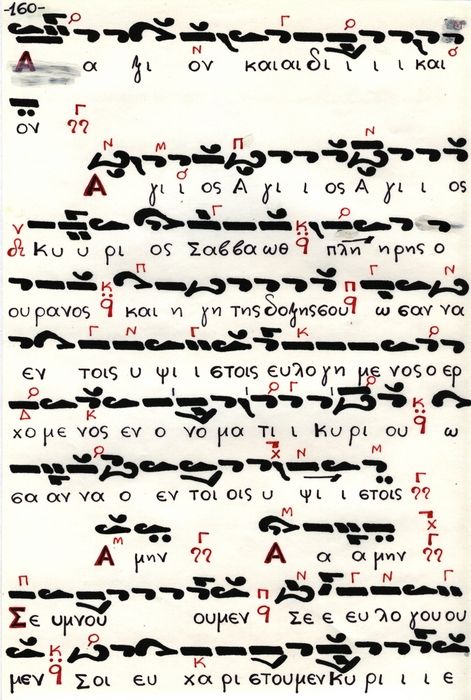 -160-
Α α ξι ον και αι δι ι ι ι και
ον
Α γι ι ος Α γι ι ος Α γι ι ος
Κυ υ ρι ος Σαββαωθ πλη ηρης ο
ουρανος και η γη της δοξης σου ωσαννα
εν τοις υ ψι ι στοις ευλογη με νος ο ερ
χο με νος εν ο νο μα τι ι Κυριου ω
σα αν να ο εν τοι οις υ ψι ι στοις
Α μην Α α α μην
Σε υμνου ουμεν Σε ε ευ λο γου ου
μεν Σοι ευ χαρι στουμεν Κυ ρι ι ι ε